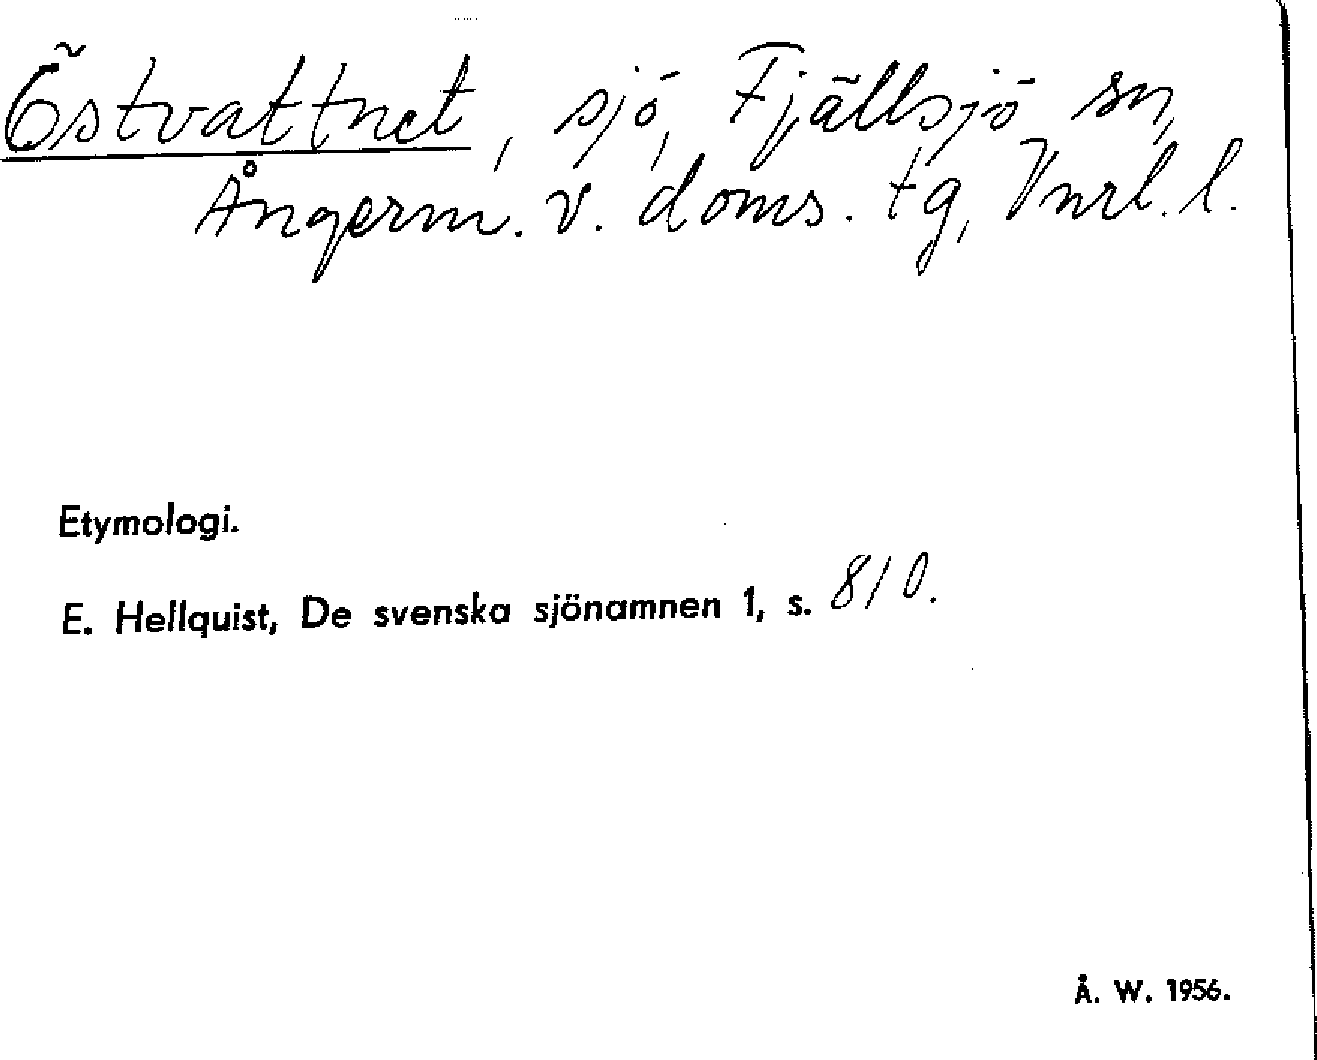 Östvattnet, sjö, Fjällsjö sn,
Ångerm. v. doms. tg, Vnrl. l.
Etymologi.
E. Hellquist, De svenska sjönamnen 1, s. 810.
Å. W. 1956.